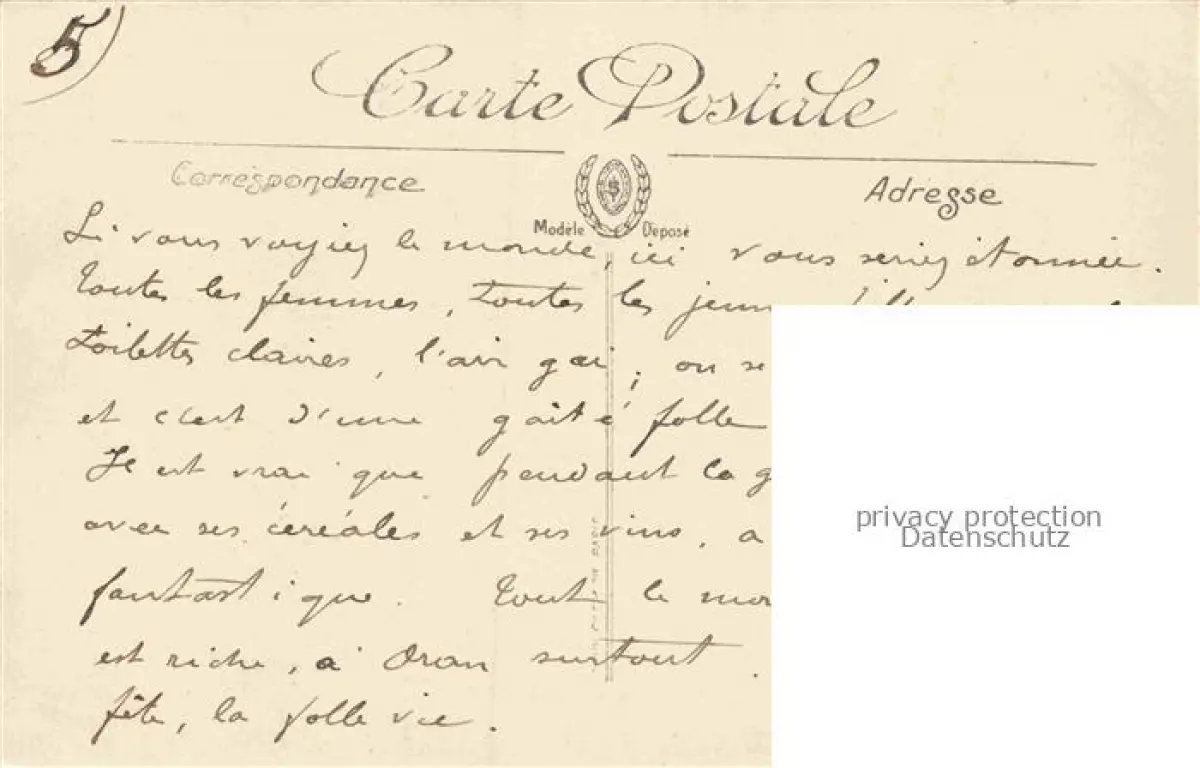 5)
Carte Postale
Correspondance
Adresse
Modèle Déposé
Si vous voyiez le monde, ici vous seriez étonnée.
Toutes les femmes, toutes les
toilettes claires, l'air gai, on se
et c'est d'une gaité folle
Il est vrai que pendant la
avec ses céréales et ses vins, a
fantastique. Tout le
est riche, à Oran surtout.
fête, la folle vie.
privacy protection
Datenschutz